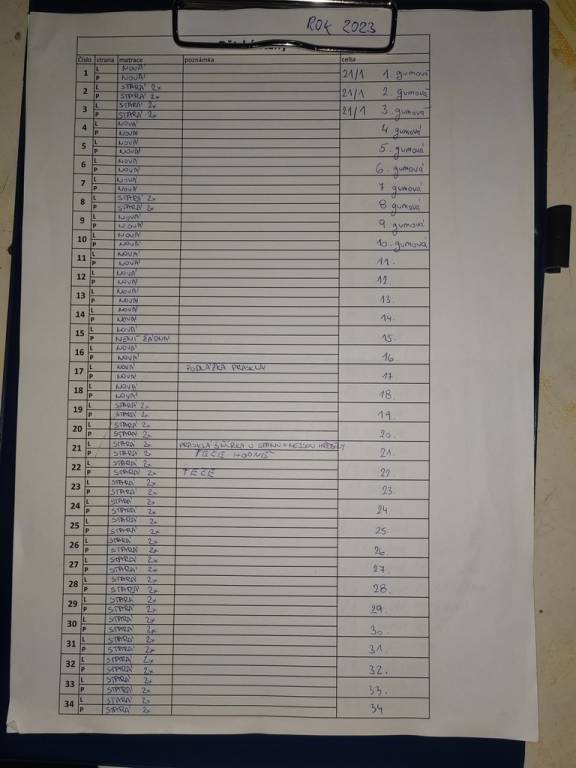 ROK 2023
číslo strana matrace poznámka celta
1 L NOVÁ 21/1 1. gumová
P NOVÁ
2 L STARÁ 2x 21/1 2. gumová
P STARÁ 2x
3 L STARÁ 2x 21/1 3. gumová
P STARÁ 2x
4 L NOVÁ 4 gumová
P NOVÁ
5 L NOVÁ 5. gumová
P NOVÁ
6 L NOVÁ 6. gumová
P NOVÁ
7 L NOVÁ 7 gumová
P NOVÁ
8 L STARÁ 2x 8 gumová
P STARÁ 2x
9 L NOVÁ 9. gumová
P NOVÁ
10 L NOVÁ 10. gumová
P NOVÁ
11 L NOVÁ 11.
P NOVÁ
12 L NOVÁ 12.
P NOVÁ
13 L NOVÁ 13.
P NOVÁ
14 L NOVÁ 14.
P NOVÁ
15 L NOVÁ 15.
P NENÍ ŽÁDNÁ
16 L NOVÁ 16.
P NOVÁ
17 L NOVÁ PODLÁŽKA PRASKLÁ 17
P NOVÁ
18 L NOVÁ 18.
P NOVÁ
19 L STARÁ 2x 19.
P STARÁ 2x
20 L STARÁ 2x 20.
P STARÁ 2x
21 L STARÁ 2x PRASKLÁ ŠŇŮRKA U STANU + NEJSOU 21.
P STARÁ 2x TEČE HODNĚ
22 L STARÁ 2x 22.
P STARÁ 2x TEČE
23 L STARÁ 2x 23.
P STARÁ 2x
24 L STARÁ 2x 24
P STARÁ 2x
25 L STARÁ 2x 25
P STARÁ 2x
26 L STARÁ 2x 26
P STARÁ 2x
27 L STARÁ 2x 27
P STARÁ 2x
28 L STARÁ 2x 28.
P STARÁ 2x
29 L STARÁ 2x 29.
P STARÁ 2x
30 L STARÁ 2x 30.
P STARÁ 2x
31 L STARÁ 2x 31.
P STARÁ 2x
32 L STARÁ 2x 32.
P STARÁ 2x
33 L STARÁ 2x 33.
P STARÁ 2x
34 L STARÁ 2x 34
P STARÁ 2x